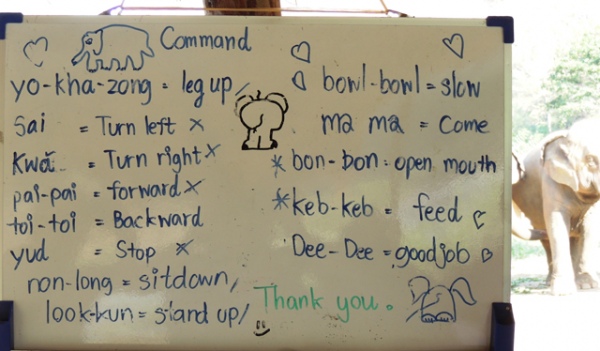 Command
yo-kha-zong = leg up/
Sai = Turn left x
Kwā = Turn right x
pai-pai = forward x
toi-toi = Backward
yud = Stop x
non-long = sitdown/
look-kun = stand up/
bowl-bowl = slow
ma ma = Come
* bon-bon = open mouth
* keb-keb = feed
Dee-Dee = goodjob
Thank you.